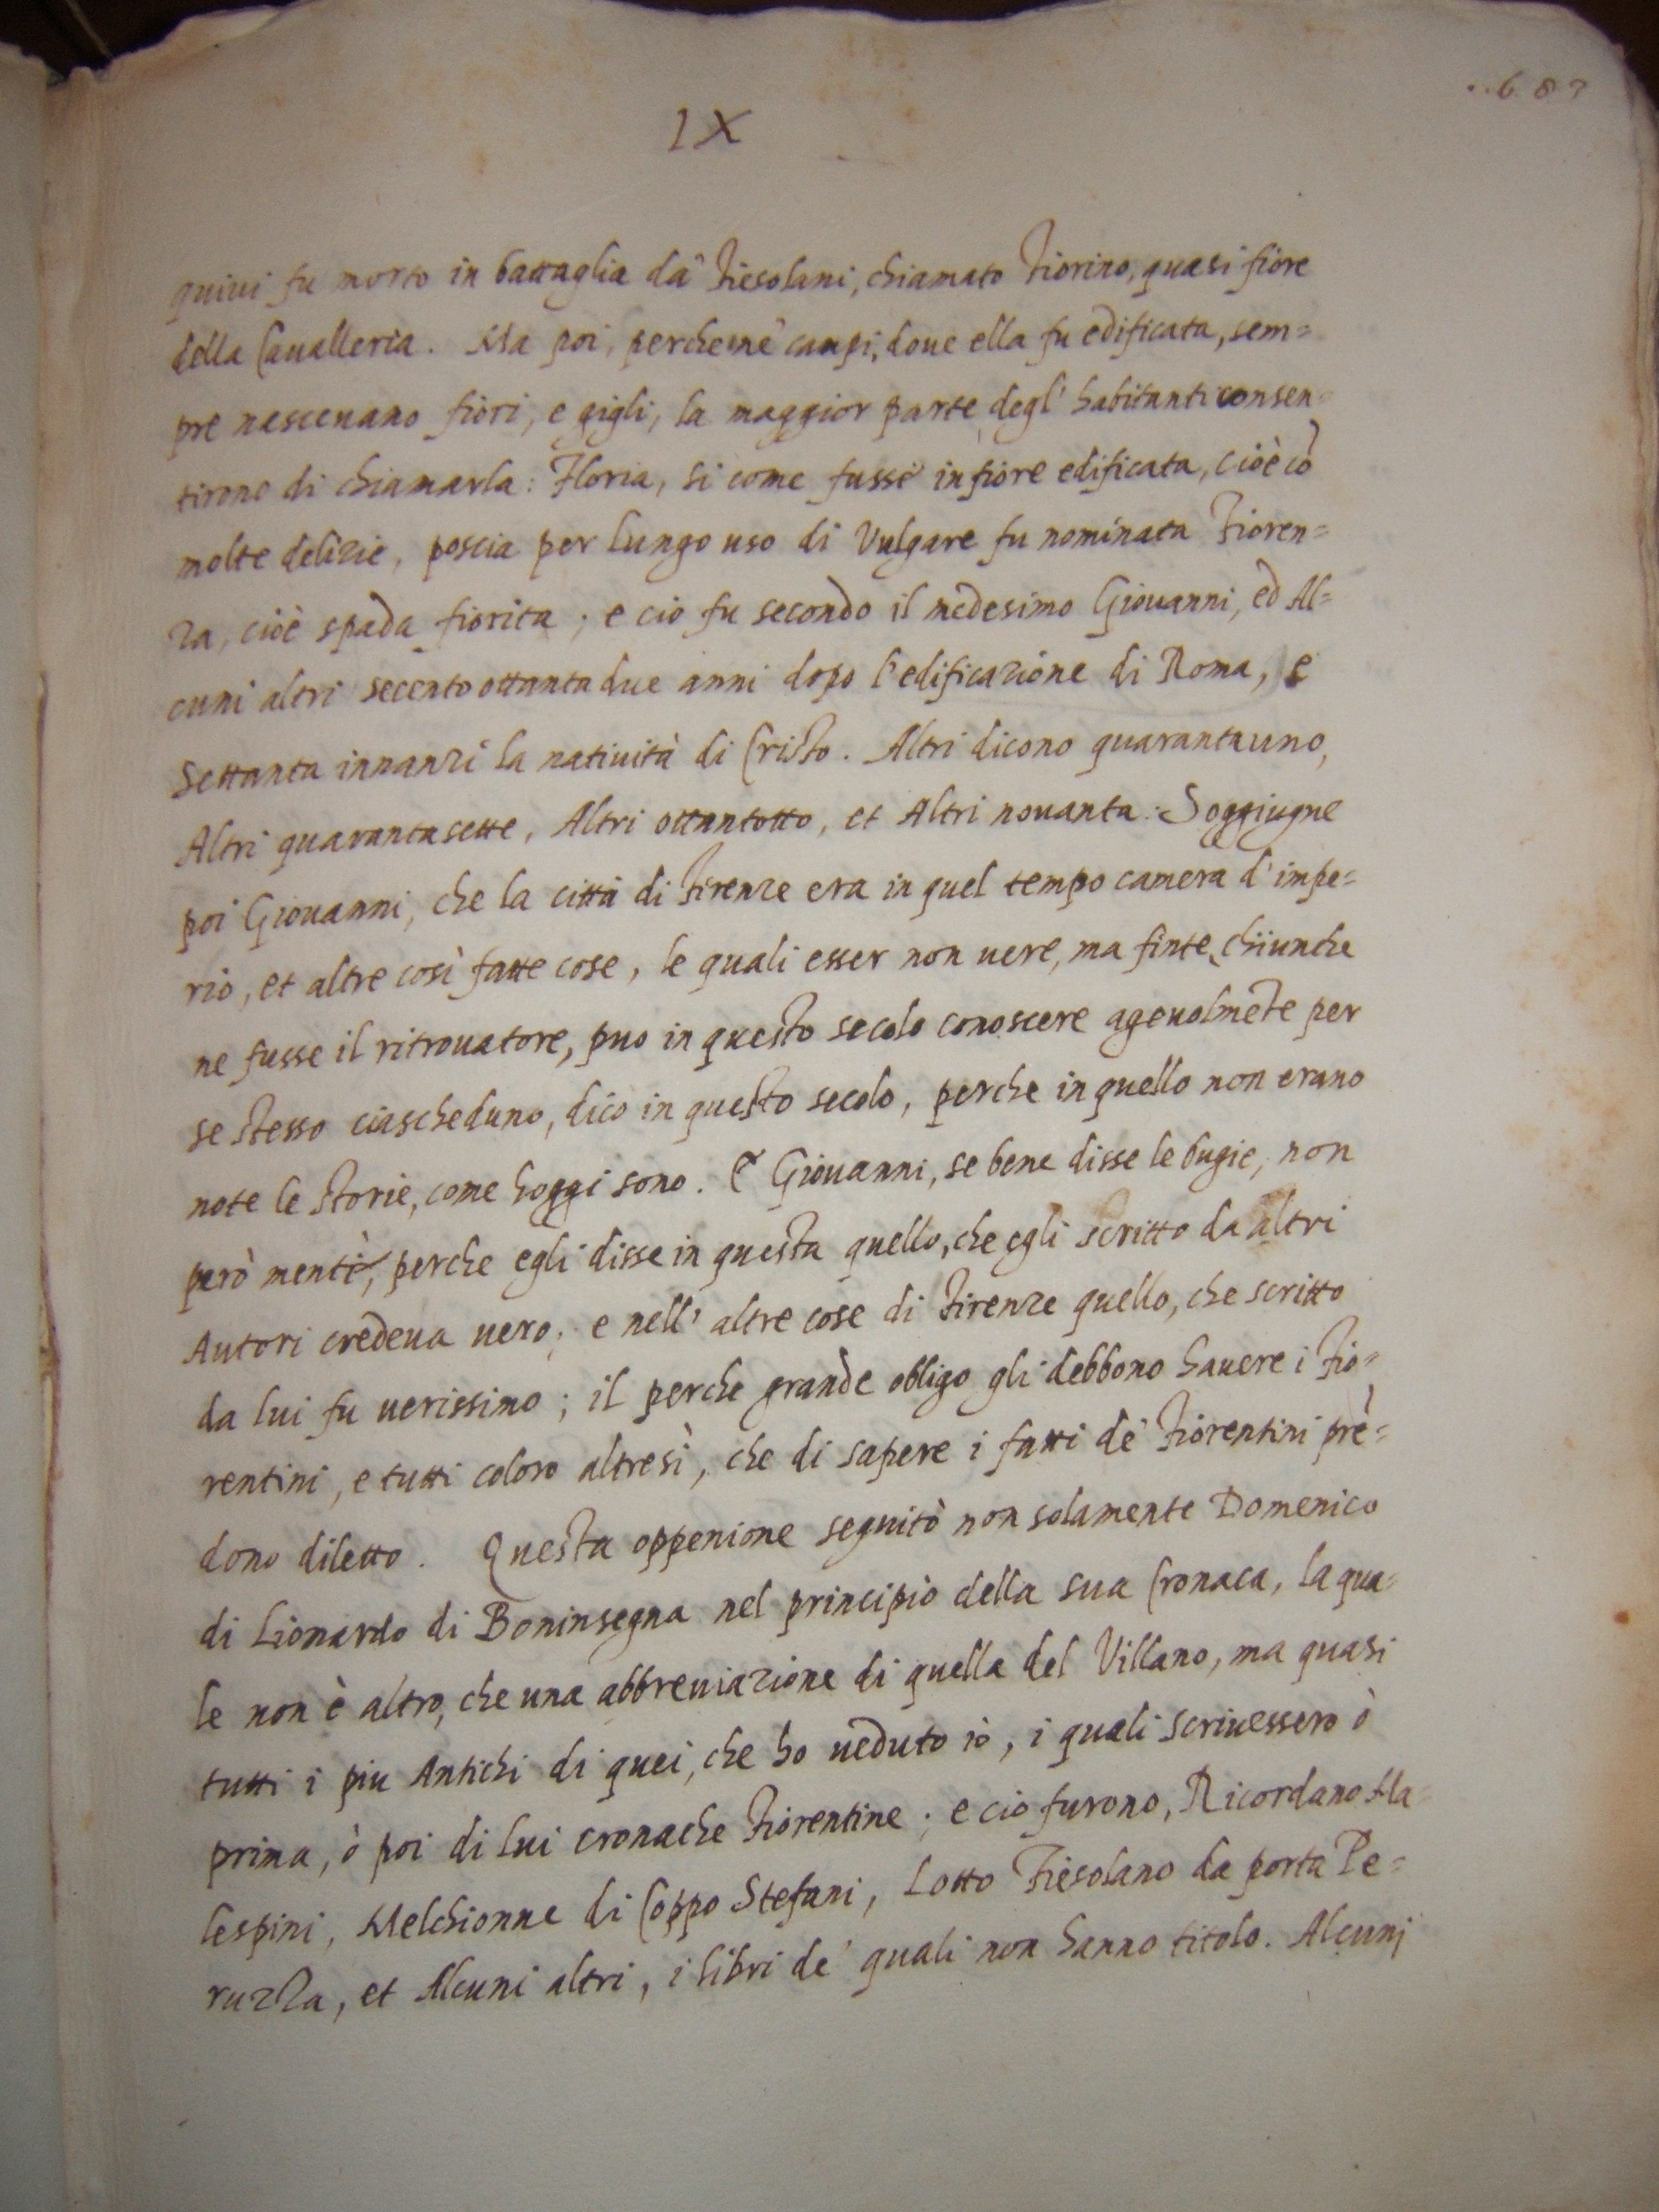 683
IX
quiui fu morto in battaglia da' Fiesolani, chiamato Fiorino, quasi fiore
della Caualleria. Ma poi, perche ne' campi, doue ella fu edificata, sem=
pre nasceuano fiori, e gigli, la maggior parte degl' habitanti consen=
tirono di chiamarla: Floria, si come fusse in fiore edificata, cioè cõ
molte delizie, poscia per lungo uso di Vulgare fu nominata Fioren=
za, cioè spada fiorita; e cio fu secondo il medesimo Giouanni, ed Al=
cuni altri secento ottanta due anni dopo l'edificazione di Roma, e
Settanta innanzi la natiuità di Cristo. Altri dicono quarantauno,
Altri quarantasette, Altri ottantotto, et Altri nouanta. Soggiugne
poi Giouanni, che la città di Firenze era in quel tempo camera d'impe=
rio, et altre così fatte cose, le quali esser non uere, ma finte, chiunche
ne fusse il ritrouatore, puo in questo secolo conoscere ageuolmẽte per
se stesso ciascheduno, dico in questo secolo, perche in quello non erano
note le storie, come hoggi sono. E Giouanni, se bene disse le bugie, non
però mentì, perche egli disse in questa quello, che egli scritto da altri
Autori credeua uero; e nell' altre cose di Firenze quello, che scritto
da lui fu uerissimo; il perche grande obligo gli debbono hauere i Fio=
rentini, e tutti coloro altresì, che di sapere i fatti de' Fiorentini prẽ=
dono diletto. Questa oppenione seguitò non solamente Domenico
di Lionardo di Boninsegna nel principio della sua Cronaca, la qua=
le non è altro, che una abbreuiazione di quella del Villano, ma quasi
tutti i piu Antichi di quei, che ho ueduto io, i quali scriuessero ò
prima, ò poi di lui cronache Fiorentine; e cio furono, Ricordano Ma=
lespini, Melchionne di Coppo Stefani, Lotto Fiesolano da porta Pe=
ruzza, et Alcuni altri, i libri de' quali non hanno titolo. Alcuni